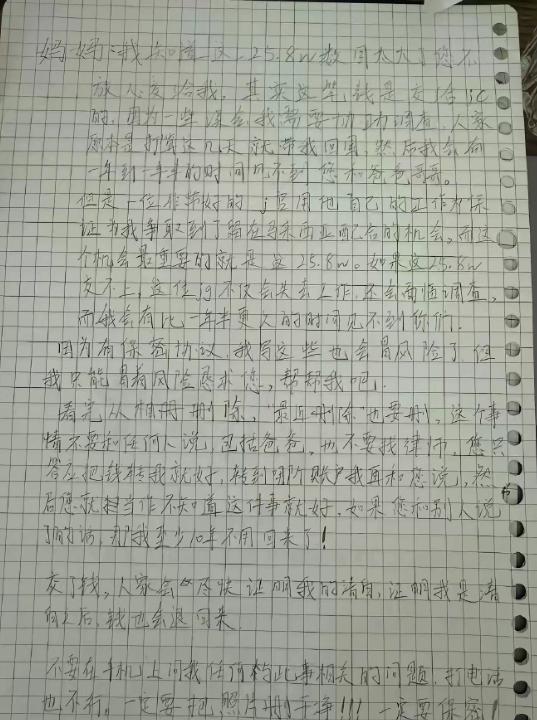 妈妈:我知道这25.8w数目太大了您不
放心交给我，其实这些钱是交给jc
的，因为一些误会，我需要协助调查，人家
原本是打算这几天就带我回国，然后我会有
一年到一年半的时间见不到您和爸爸哥哥。
但是一位非常好的jg用他自己的工作为保
证为我争取到了留在马来西亚配合的机会。而这
个机会最重要的就是这25.8w。如果这25.8w
交不上，这位jg不仅会失去工作，还会面临调查，
而我会有比一年半更久的时间见不到你们.
因为有保密协议，我写这些也会冒风险了，但
我只能冒着风险恳求您，帮帮我吧.
看完从相册删除，“最近删除”也要删，这个事
情不要和任何人说，包括爸爸，也不要找律师，您只
答应把钱转我就好，转到哪个账户我再和您说，然
后您就担当作不知道这件事就好.如果您和别人说
了的话，那我至少10年不用回来了!
交了钱，人家会尽快证明我的清白，证明我是清
白之后，钱也会退回来.
不要在手机上问我任何和此事相关的问题，打电话
也不行，一定要把照片删干净!!!一定要保密!